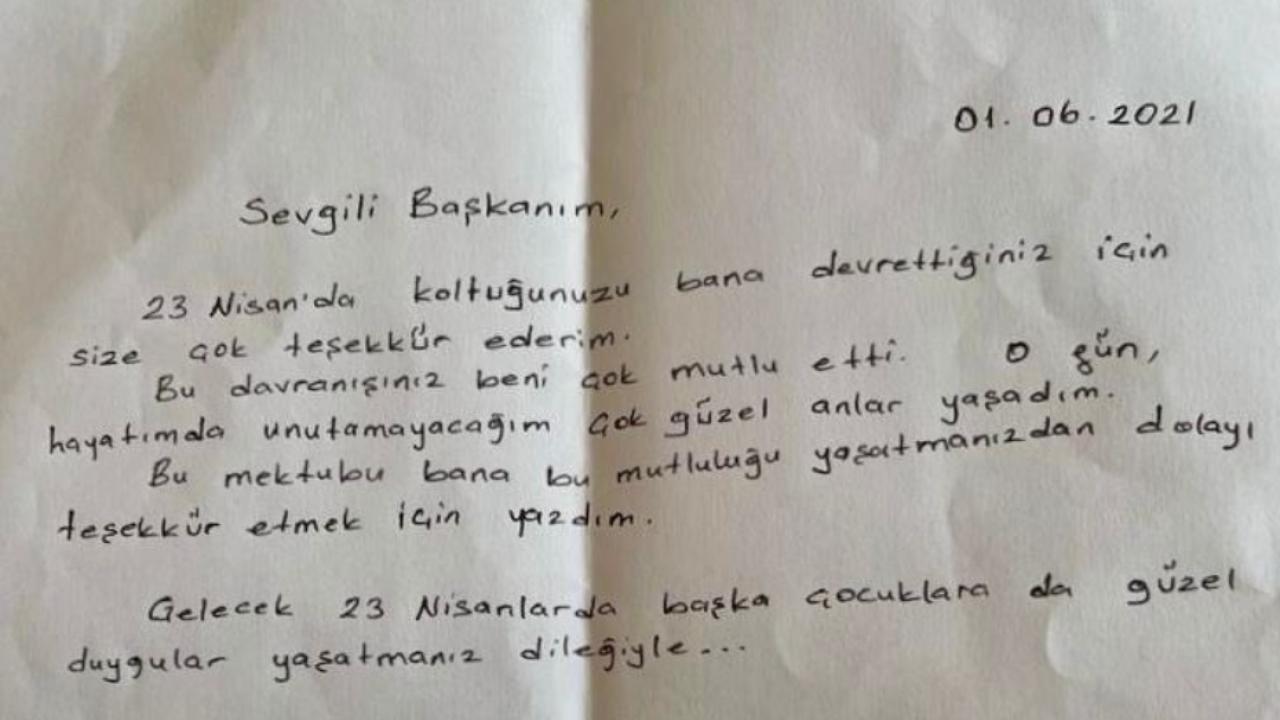 01.06.2021
Sevgili Başkanım,
23 Nisan'da koltuğunuzu bana devrettiğiniz için
size çok teşekkür ederim.
Bu davranışınız beni çok mutlu etti. O gün,
hayatımda unutamayacağım çok güzel anlar yaşadım.
Bu mektubu bana bu mutluluğu yaşatmanızdan dolayı
teşekkür etmek için yazdım.
Gelecek 23 Nisanlarda başka çocuklara da güzel
duygular yaşatmanız dileğiyle...